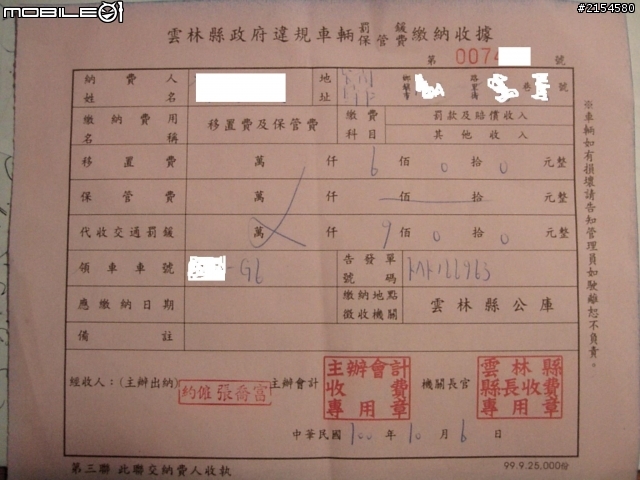 MOBILE01
#2154580
雲林縣政府違規車輛罰鍰保管費繳納收據
第 0074 號
納費人姓名 地址 鄉鎮市 路里街 巷 號
繳納費用名稱 移置費及保管費 繳費科目 罰款及賠償收入
其他收入
移置費 萬 仟 6 佰 0 拾 0 元整
保管費 萬 仟 佰 拾 元整
代收交通罰鍰 萬 仟 9 佰 0 拾 0 元整
領車車號 -G6 告發單號碼 166963
應繳納日期 繳納地點徵收機關 雲林縣公庫
備註
經收人：(主辦出納) 約僱 張喬富 主辦會計 主辦會計收費專用章 機關長官 雲林縣縣長收費專用章
中華民國 100 年 10 月 6 日
第三聯 此聯交納費人收執 99.9.25,000份
※車輛如有損壞請告知管理員如駛離恕不負責。